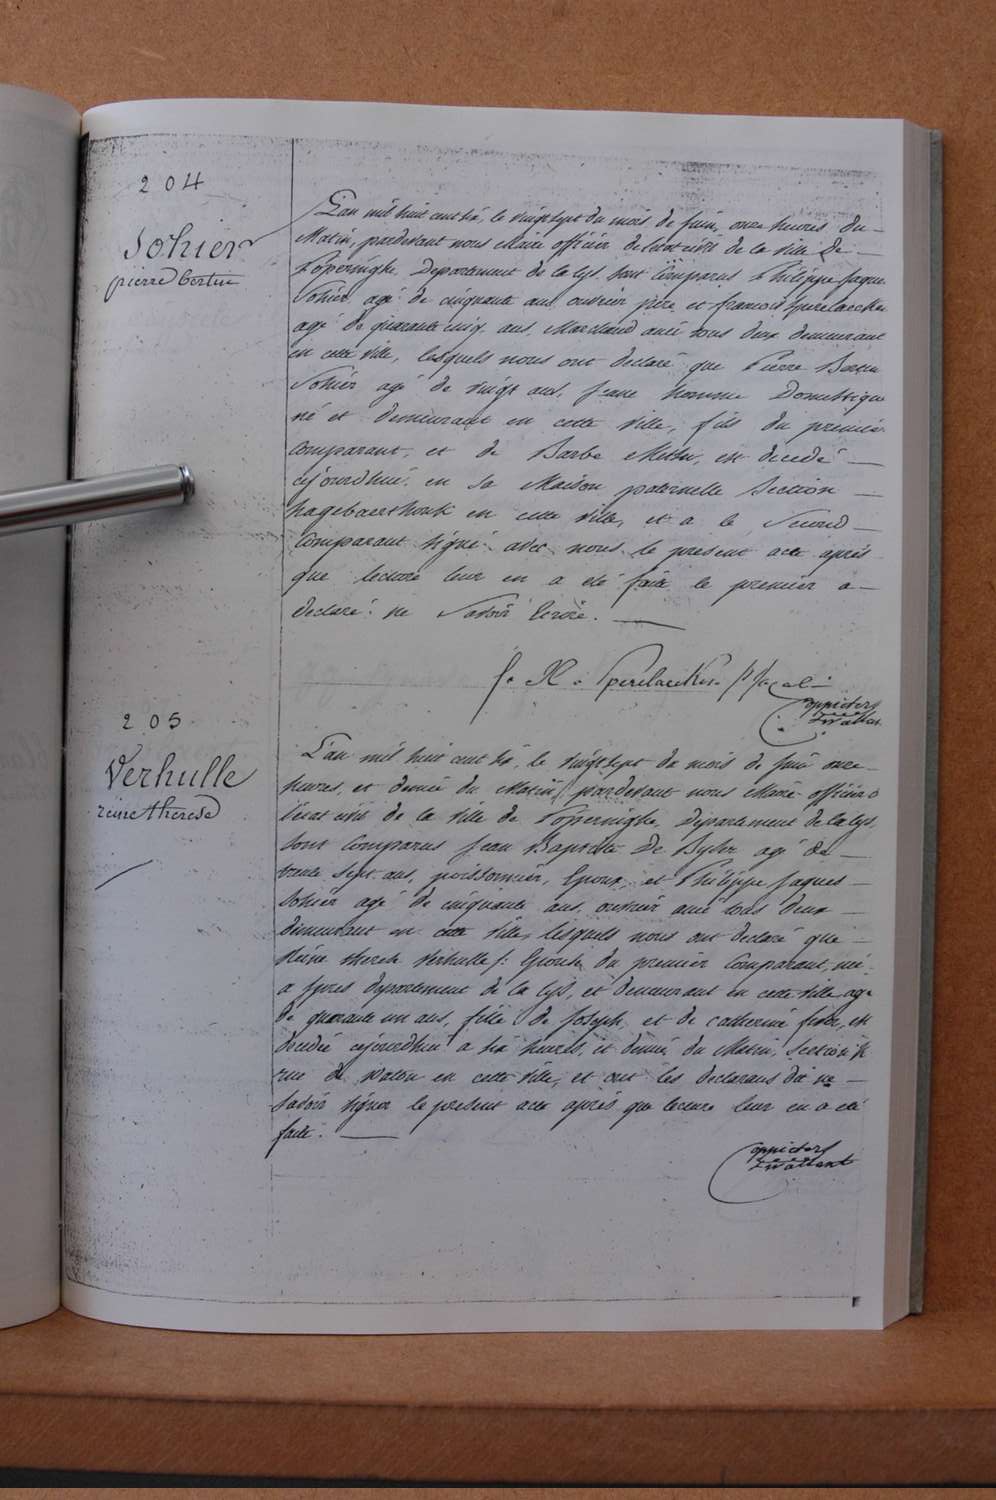 204
Sohier
pierre Bertin
L'an mil huit cent six, le vingt sept du mois de Juin, onze heures du
Matin, pardevant nous Maire officier de l'état civil de la ville de
Poperinghe, Departement de la Lys, sont Comparus Philippe Jaques
Sohier agé de cinquante ans, ouvrier père et francois
agé de quarante cinq ans, Marchand amis tous deux demeurant
en cette ville, lesquels nous ont declaré que Pierre Bertin
Sohier agé de vingt ans, Jeune homme Domestique
né et demeurant en cette ville, fils du premier
Comparant, et de Barbe est decedé
cejourdhui en sa Maison paternelle Section
en cette ville, et a le Second
Comparant signé avec nous le present acte après
que lecture leur en a été faite le premier a
declaré ne Savoir Ecrire.
205
Verhulle
reine therese
L'an mil huit cent six, le vingt sept du mois de Juin onze
heures et demie du Matin, pardevant nous Maire officier d
l'état civil de la ville de Poperinghe, Département de la Lys,
sont Comparus Jean Baptiste De Byser agé de
trente Sept ans, poissonnier, Epoux, et Philippe Jaques
Sohier agé de cinquante ans, ouvrier ami tous deux
demeurant en cette ville, lesquels nous ont declaré que
Reine therese Verhulle Epouse du premier Comparant, née
a Ypres departement de la Lys, et demeurant en cette ville agé
de quarante un ans, fille de Joseph, et de catherine est
decedée cejourdhui a six heures, et demie du Matin, Section
rue de Watou en cette ville, et ont les declarans dit ne
Savoir signer le present acte après que lecture leur en a été
faite.